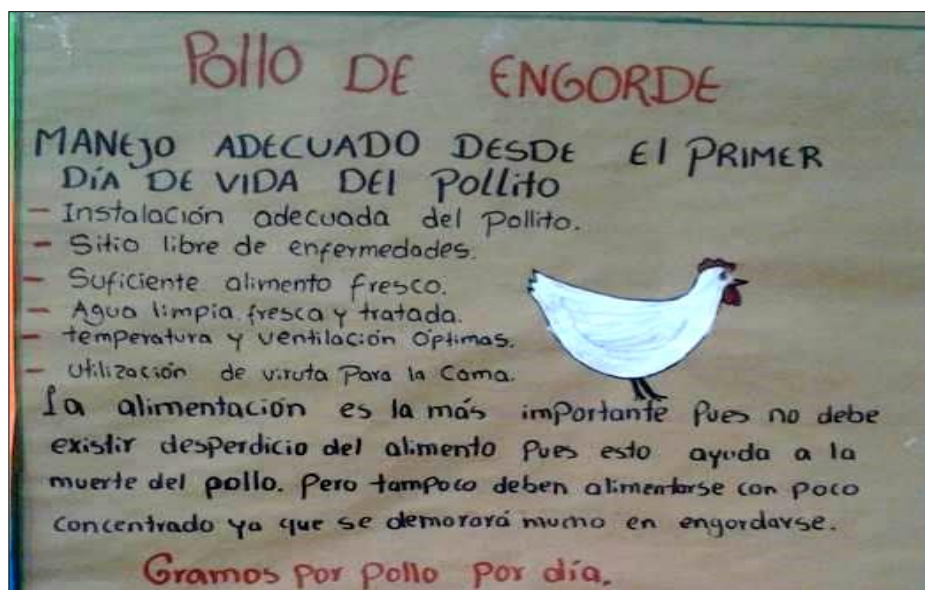 Pollo DE ENGORDE
MANEJO ADECUADO DESDE El PRIMER
DÍA DE VIDA DEl Pollito
- Instalación adecuada del Pollito.
- Sitio libre de enfermedades.
- Suficiente alimento fresco.
- Agua limpia, fresca y tratada.
- temperatura y ventilación Óptimas.
- Utilización de viruta Para la Cama.
La alimentación es la más importante Pues no debe
existir desperdicio del alimento Pues esto ayuda a la
muerte del pollo. Pero tampoco deben alimentarse con poco
concentrado ya que se demorará mucho en engordarse.
Gramos Por Pollo Por día.